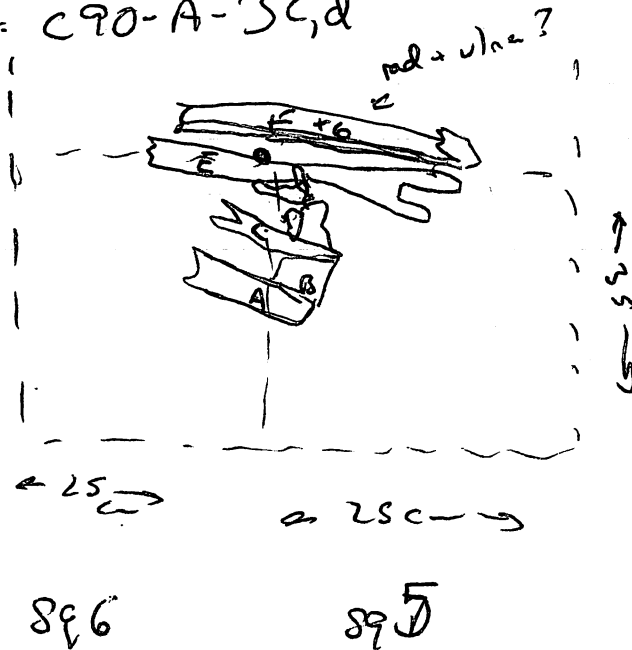 = C90-A-3C,d
rad + ulna ?
F + G
E D
C
B
A
25
25c
Sq 6
Sq 5